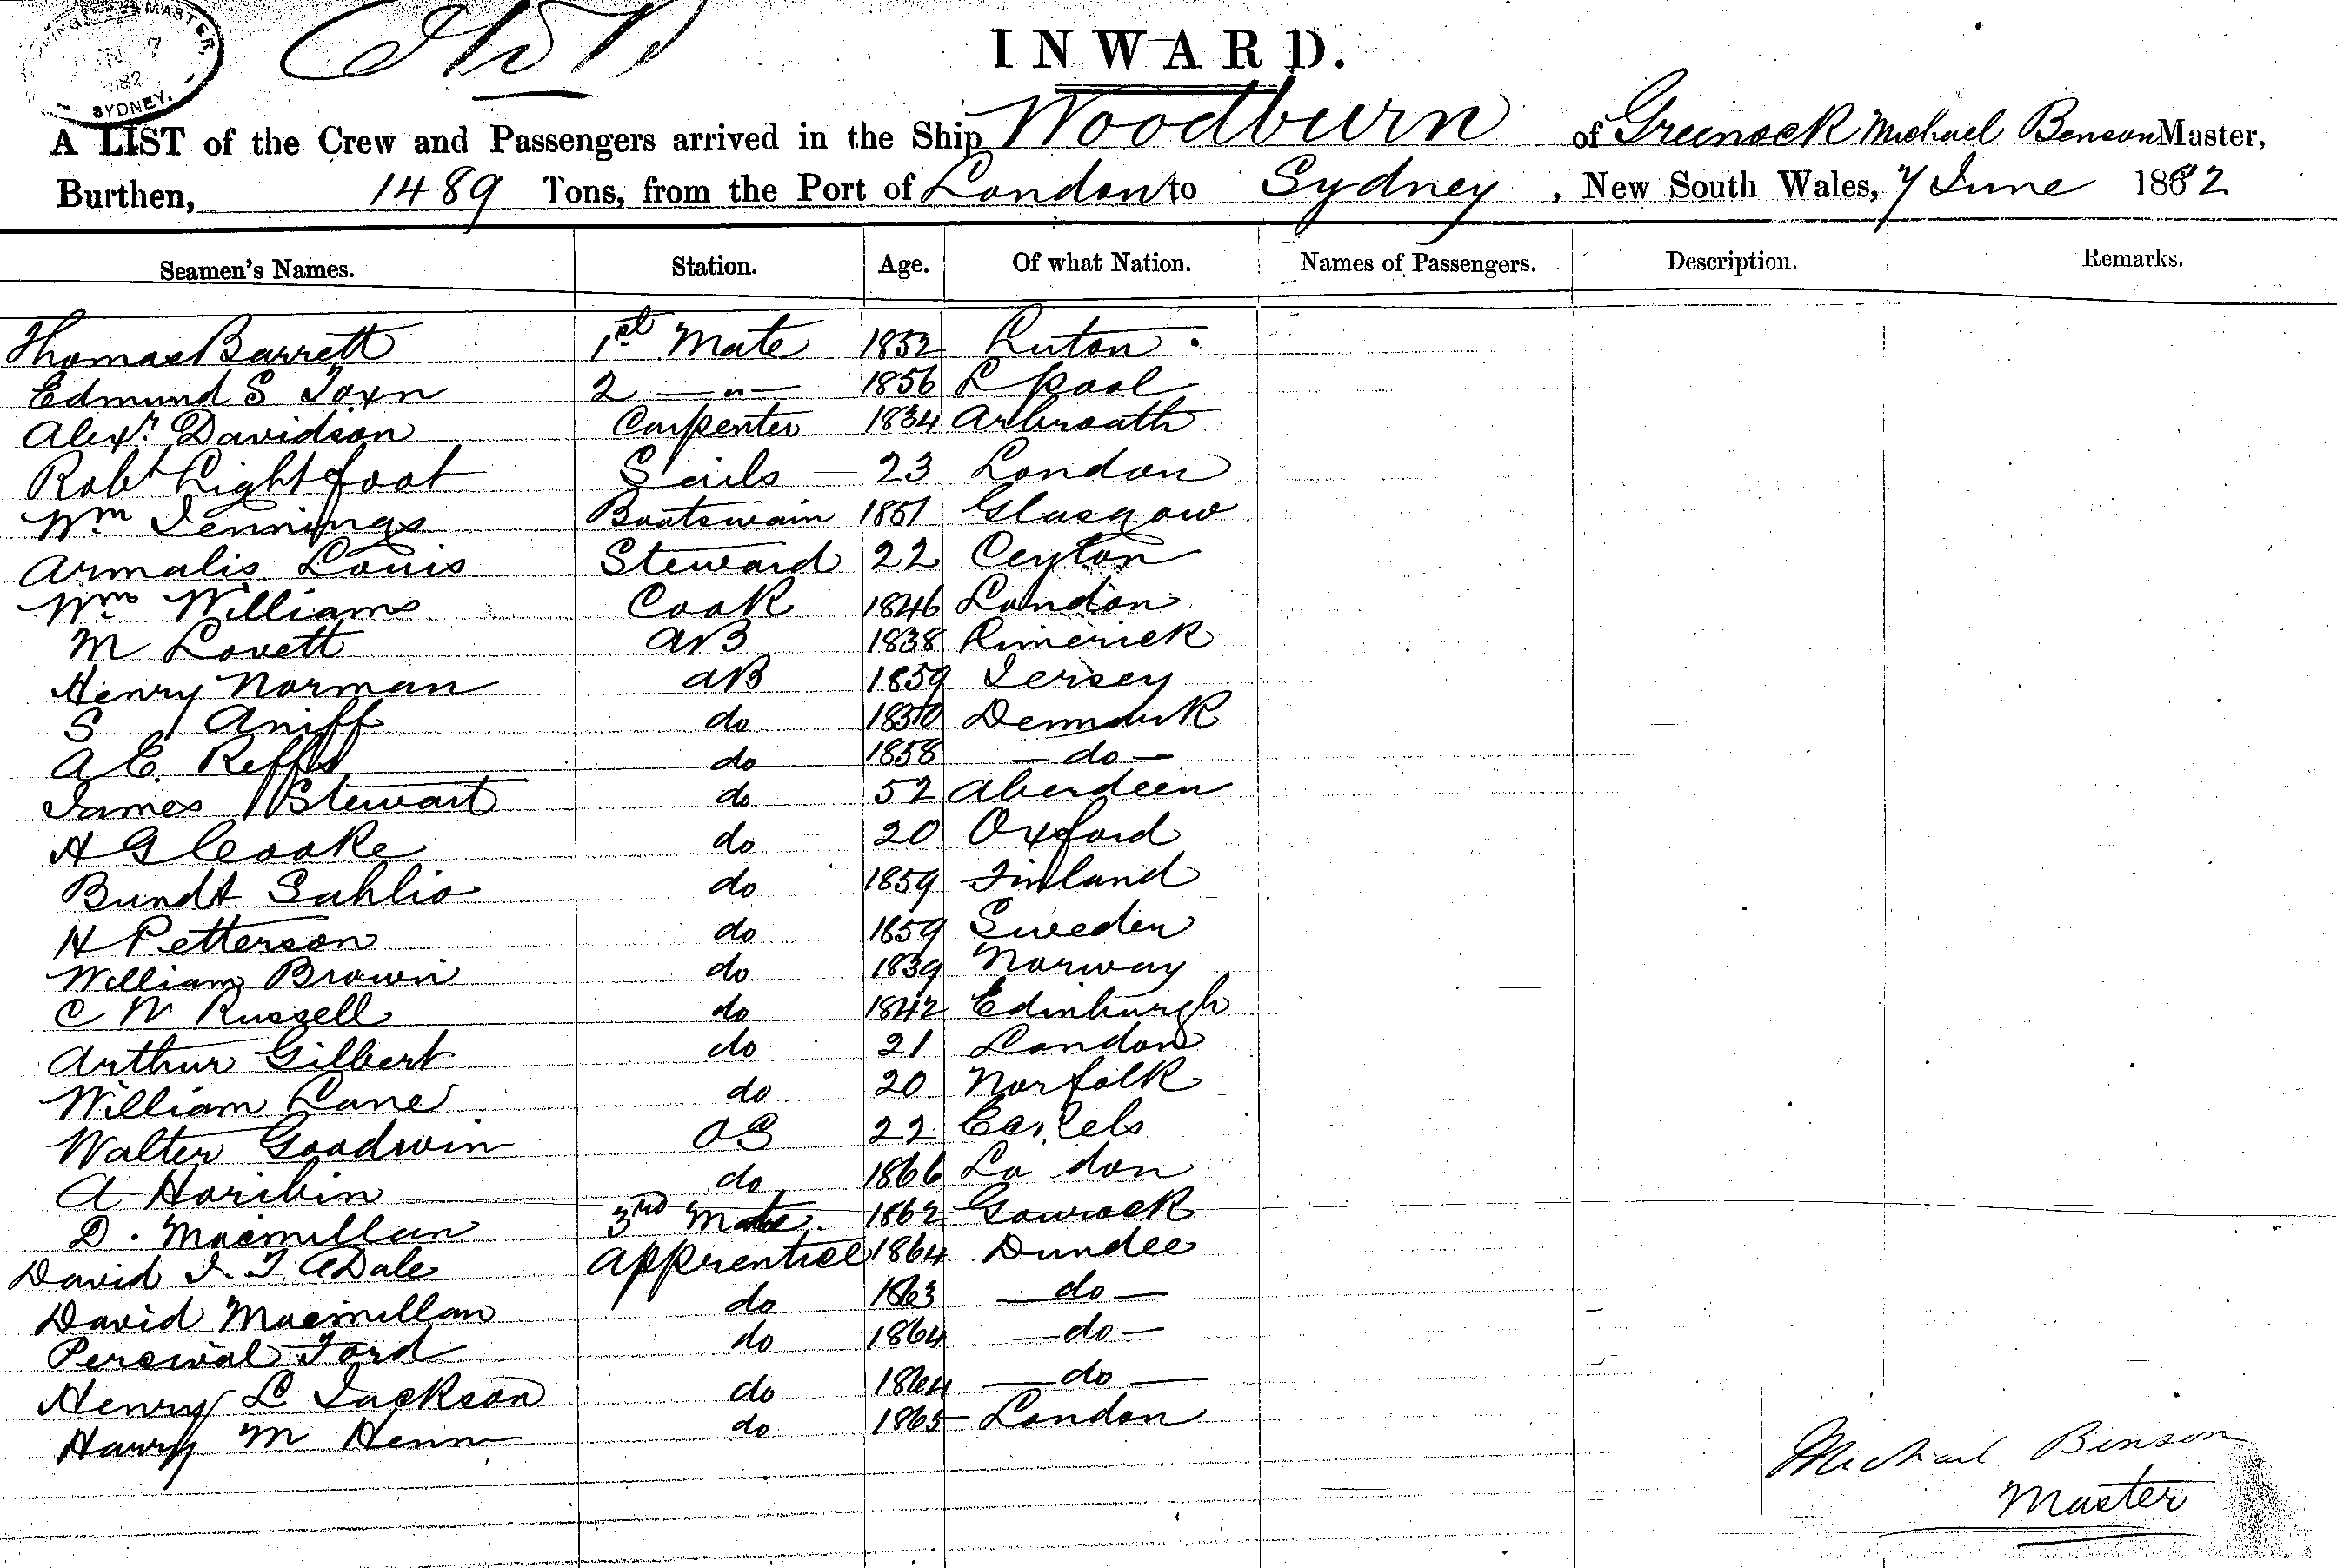 MASTER,
7
82
SYDNEY.
INWARD.
A LIST of the Crew and Passengers arrived in the Ship Woodburn of Greenock Michael Benson Master,
Burthen, 1489 Tons, from the Port of London to Sydney, New South Wales, 7 June 1882
Seamen's Names. Station. Age. Of what Nation. Names of Passengers. Description. Remarks.
Thomas Barrett 1st Mate 1852 Luton
Edmund S 2 — " — 1856 L pool
Alexr. Davidson Carpenter 1834 Arbroath
Robt Lightfoot Sails — 23 London
Wm Jennings Boatswain 1851 Glasgow
Armalis Louis Steward 22 Ceylon
Wm Williams Cook 1846 London
M Lovett AB 1838 Limerick
Henry Norman AB 1859 Jersey
S Aniff do 1850 Denmark
A E. do 1858 — do —
James Stewart do 52 Aberdeen
H G Cooke do 20 Oxford
Bundt Sahlio do 1859 Finland
H Petterson do 1859 Sweden
William Brown do 1839 Norway
C W Russell do 1842 Edinburgh
Arthur Gilbert do 21 London
William Lane do 20 Norfolk
Walter Goodwin OS 22
A Horibin do 1866 Lo don
D. Macmillan 3rd Mate. 1862 Gourock
David Dale Apprentice 1864 Dundee
David Macmillan do 1863 — do —
Percival Ford do 1864 — do —
Henry L Jackson do 1864 — do —
Harry M Henn do 1865 London
Michael Benson
Master